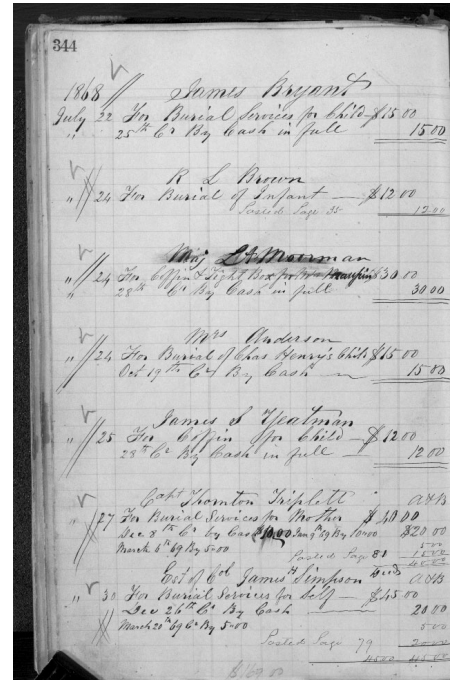 344
1868 // James Bryant
July 22 For Burial Services for Child — $15.00
" 25th Cr By Cash in full 15.00
R L Brown
" 24 For Burial of Infant — $12.00
Posted Page 35 12.00
Maj Moorman
" 24 For Coffin & Tight Box $30.00
" 28th Cr By Cash in full 30.00
Mrs Anderson
" 24 For Burial of Chas Henry's Child $15.00
Oct 19th Cr By Cash — 15.00
James S Yeatman
" 25 For Coffin for Child — $12.00
28th Cr By Cash in full — 12.00
Capt Thornton Triplett A&B
" 27 For Burial Services for Mother $40.00
Dec 8th Cr by Cash $10.00 Jan 9th 69 By 10.00 $20.00
March 6th 69 By 5.00 5.00
Posted Page 81 15.00
40.00
Est of Col James H Simpson Decd A&B
" 30 For Burial Services for Self — $45.00
Dec 26th Cr By Cash — 20.00
March 20th 69 Cr By 5.00 5.00
Posted Page 79 20.00
45.00 45.00
$169.00